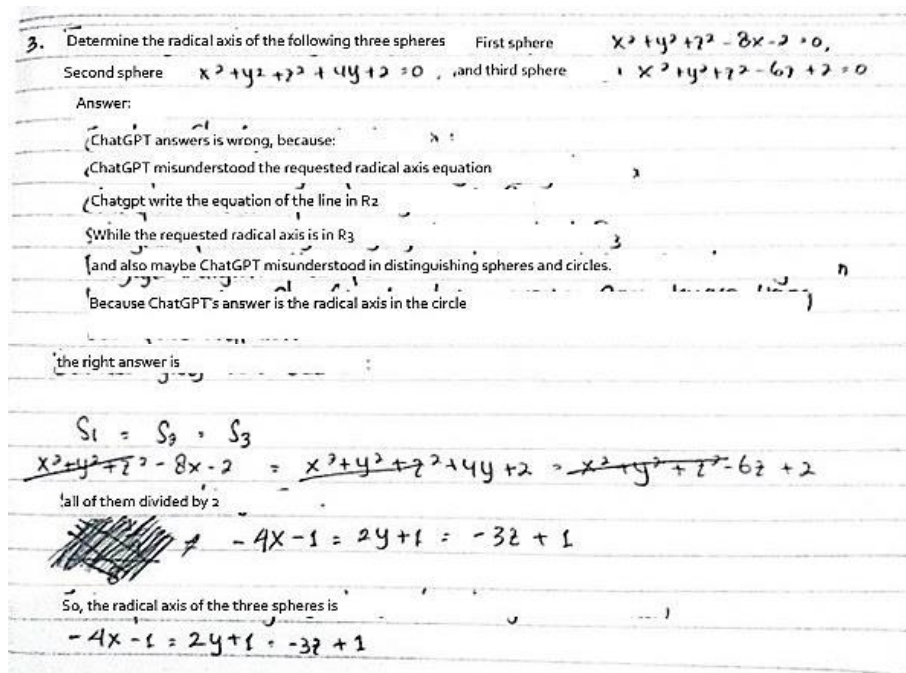 3. Determine the radical axis of the following three spheres First sphere x²+y²+z²-8x-2=0,
Second sphere x²+y²+z²+4y+2=0, and third sphere x²+y²+z²-6z+2=0
Answer:
ChatGPT answers is wrong, because:
ChatGPT misunderstood the requested radical axis equation
Chatgpt write the equation of the line in R2
While the requested radical axis is in R3
and also maybe ChatGPT misunderstood in distinguishing spheres and circles.
Because ChatGPT's answer is the radical axis in the circle
the right answer is :
S₁ = S₂ = S₃
x²+y²+z²-8x-2 = x²+y²+z²+4y+2 = x²+y²+z²-6z+2
all of them divided by 2
-4x-1 = 2y+1 = -3z+1
So, the radical axis of the three spheres is
-4x-1 = 2y+1 = -3z+1